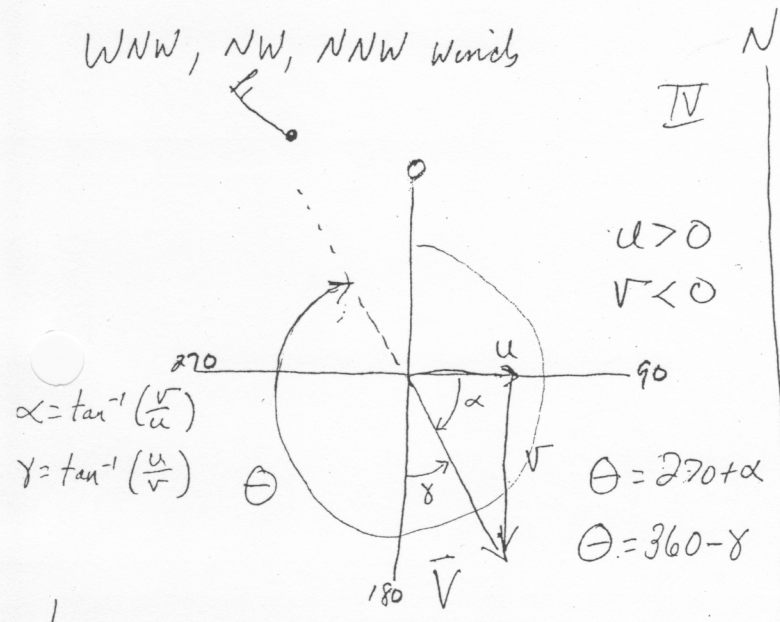 WNW, NW, NNW winds
N
IV
0
u>0
v<0
270
u
90
α=tan⁻¹(v/u)
α
γ=tan⁻¹(u/v)
v
θ
γ
θ=270+α
θ=360-γ
180
V⃗